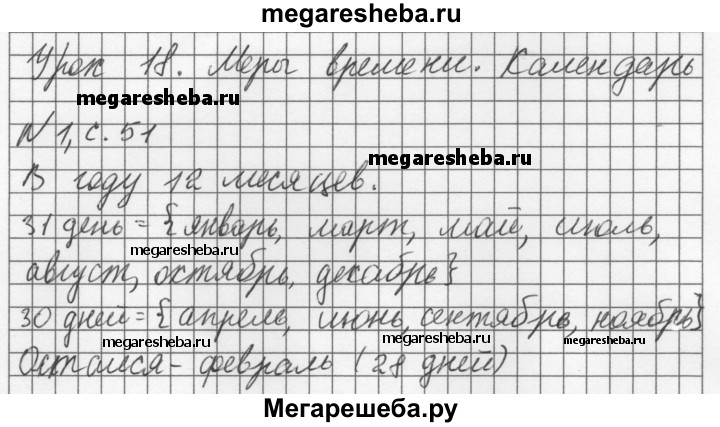 megaresheba.ru
Урок 18. Меры времени. Календарь
megaresheba.ru
N 1, с. 51
megaresheba.ru
В году 12 месяцев.
31 день = {январь, март, май, июль,
megaresheba.ru
август, октябрь, декабрь}
30 дней = {апрель, июнь, сентябрь, ноябрь}
megaresheba.ru
megaresheba.ru
Остался - февраль (28 дней)
megaresheba.ru
Мегарешеба.ру